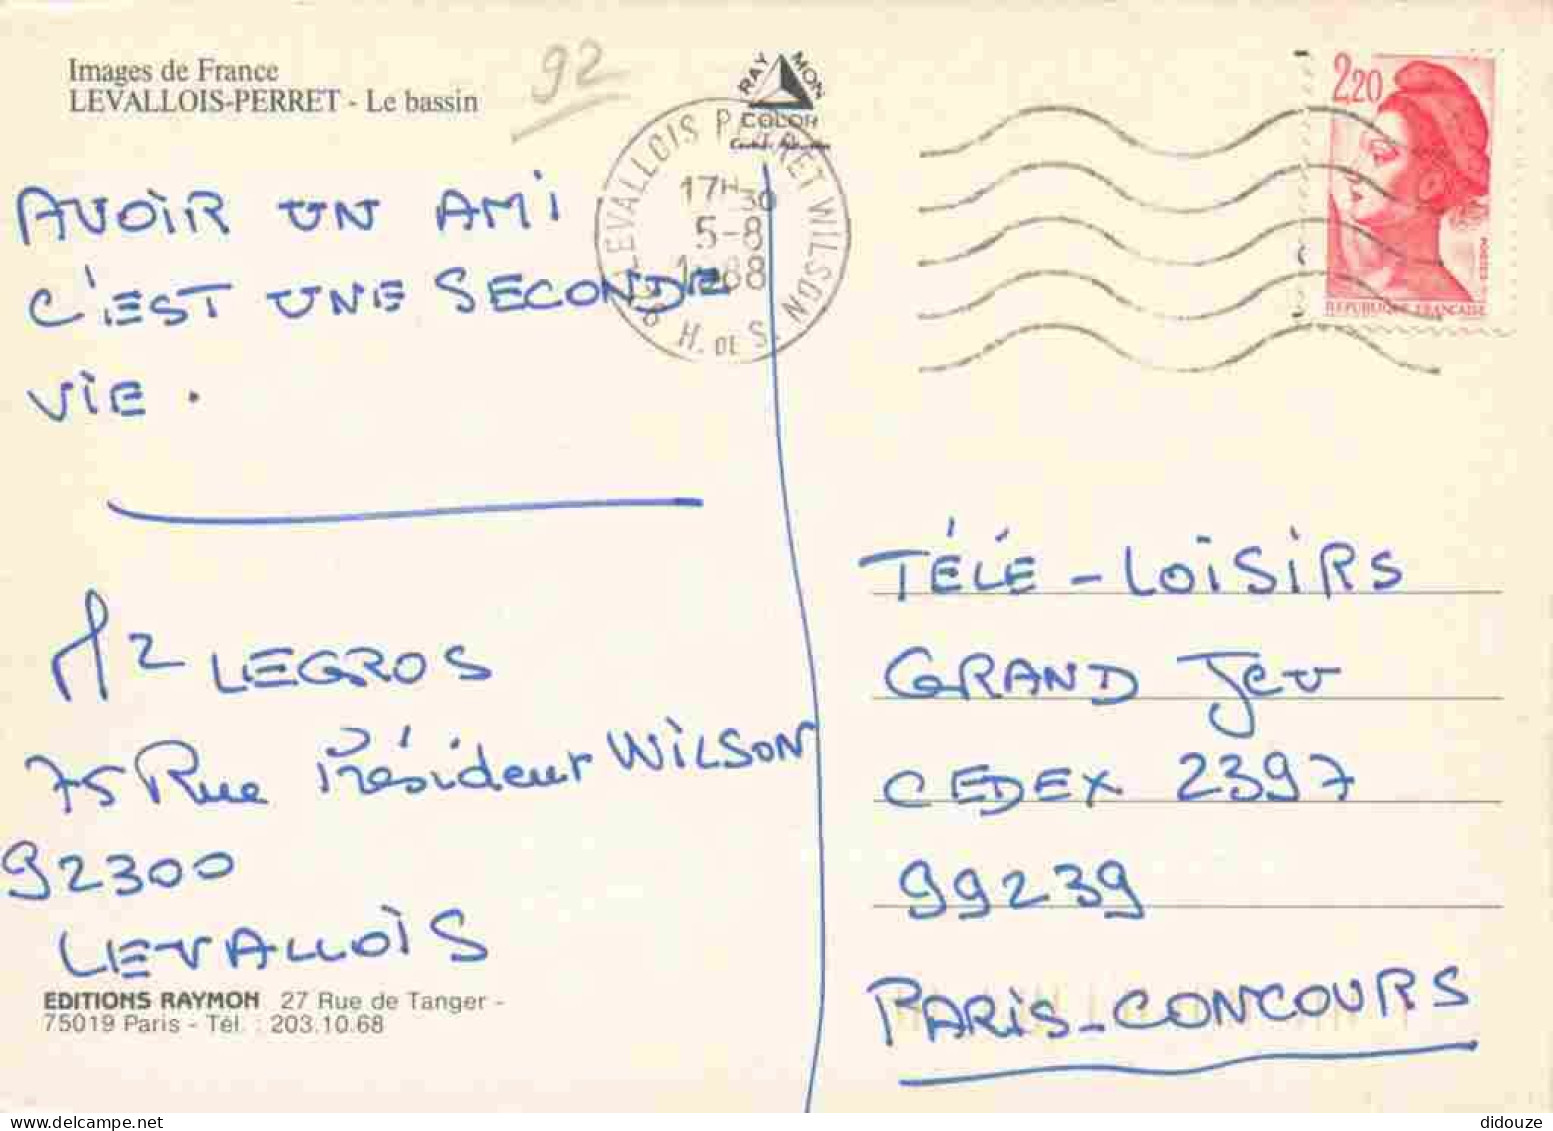 Images de France
LEVALLOIS-PERRET - Le bassin
92
RAYMON
COLOR
LEVALLOIS PERRET WILSON
17H30
5-8
1988
H. DE S
2,20
REPUBLIQUE FRANCAISE
AVOIR UN AMI
C'EST UNE SECONDE
VIE .
LEGROS
75 Rue Président WILSON
92300
LEVALLOIS
EDITIONS RAYMON 27 Rue de Tanger -
75019 Paris - Tél. : 203.10.68
TÉLÉ - LOISIRS
GRAND JEU
CEDEX 2397
99239
PARIS-CONCOURS
didouze